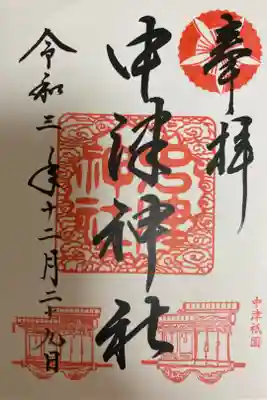 奉拝
中津神社
令和三年十二月二十九日
中津祇園
中津神社